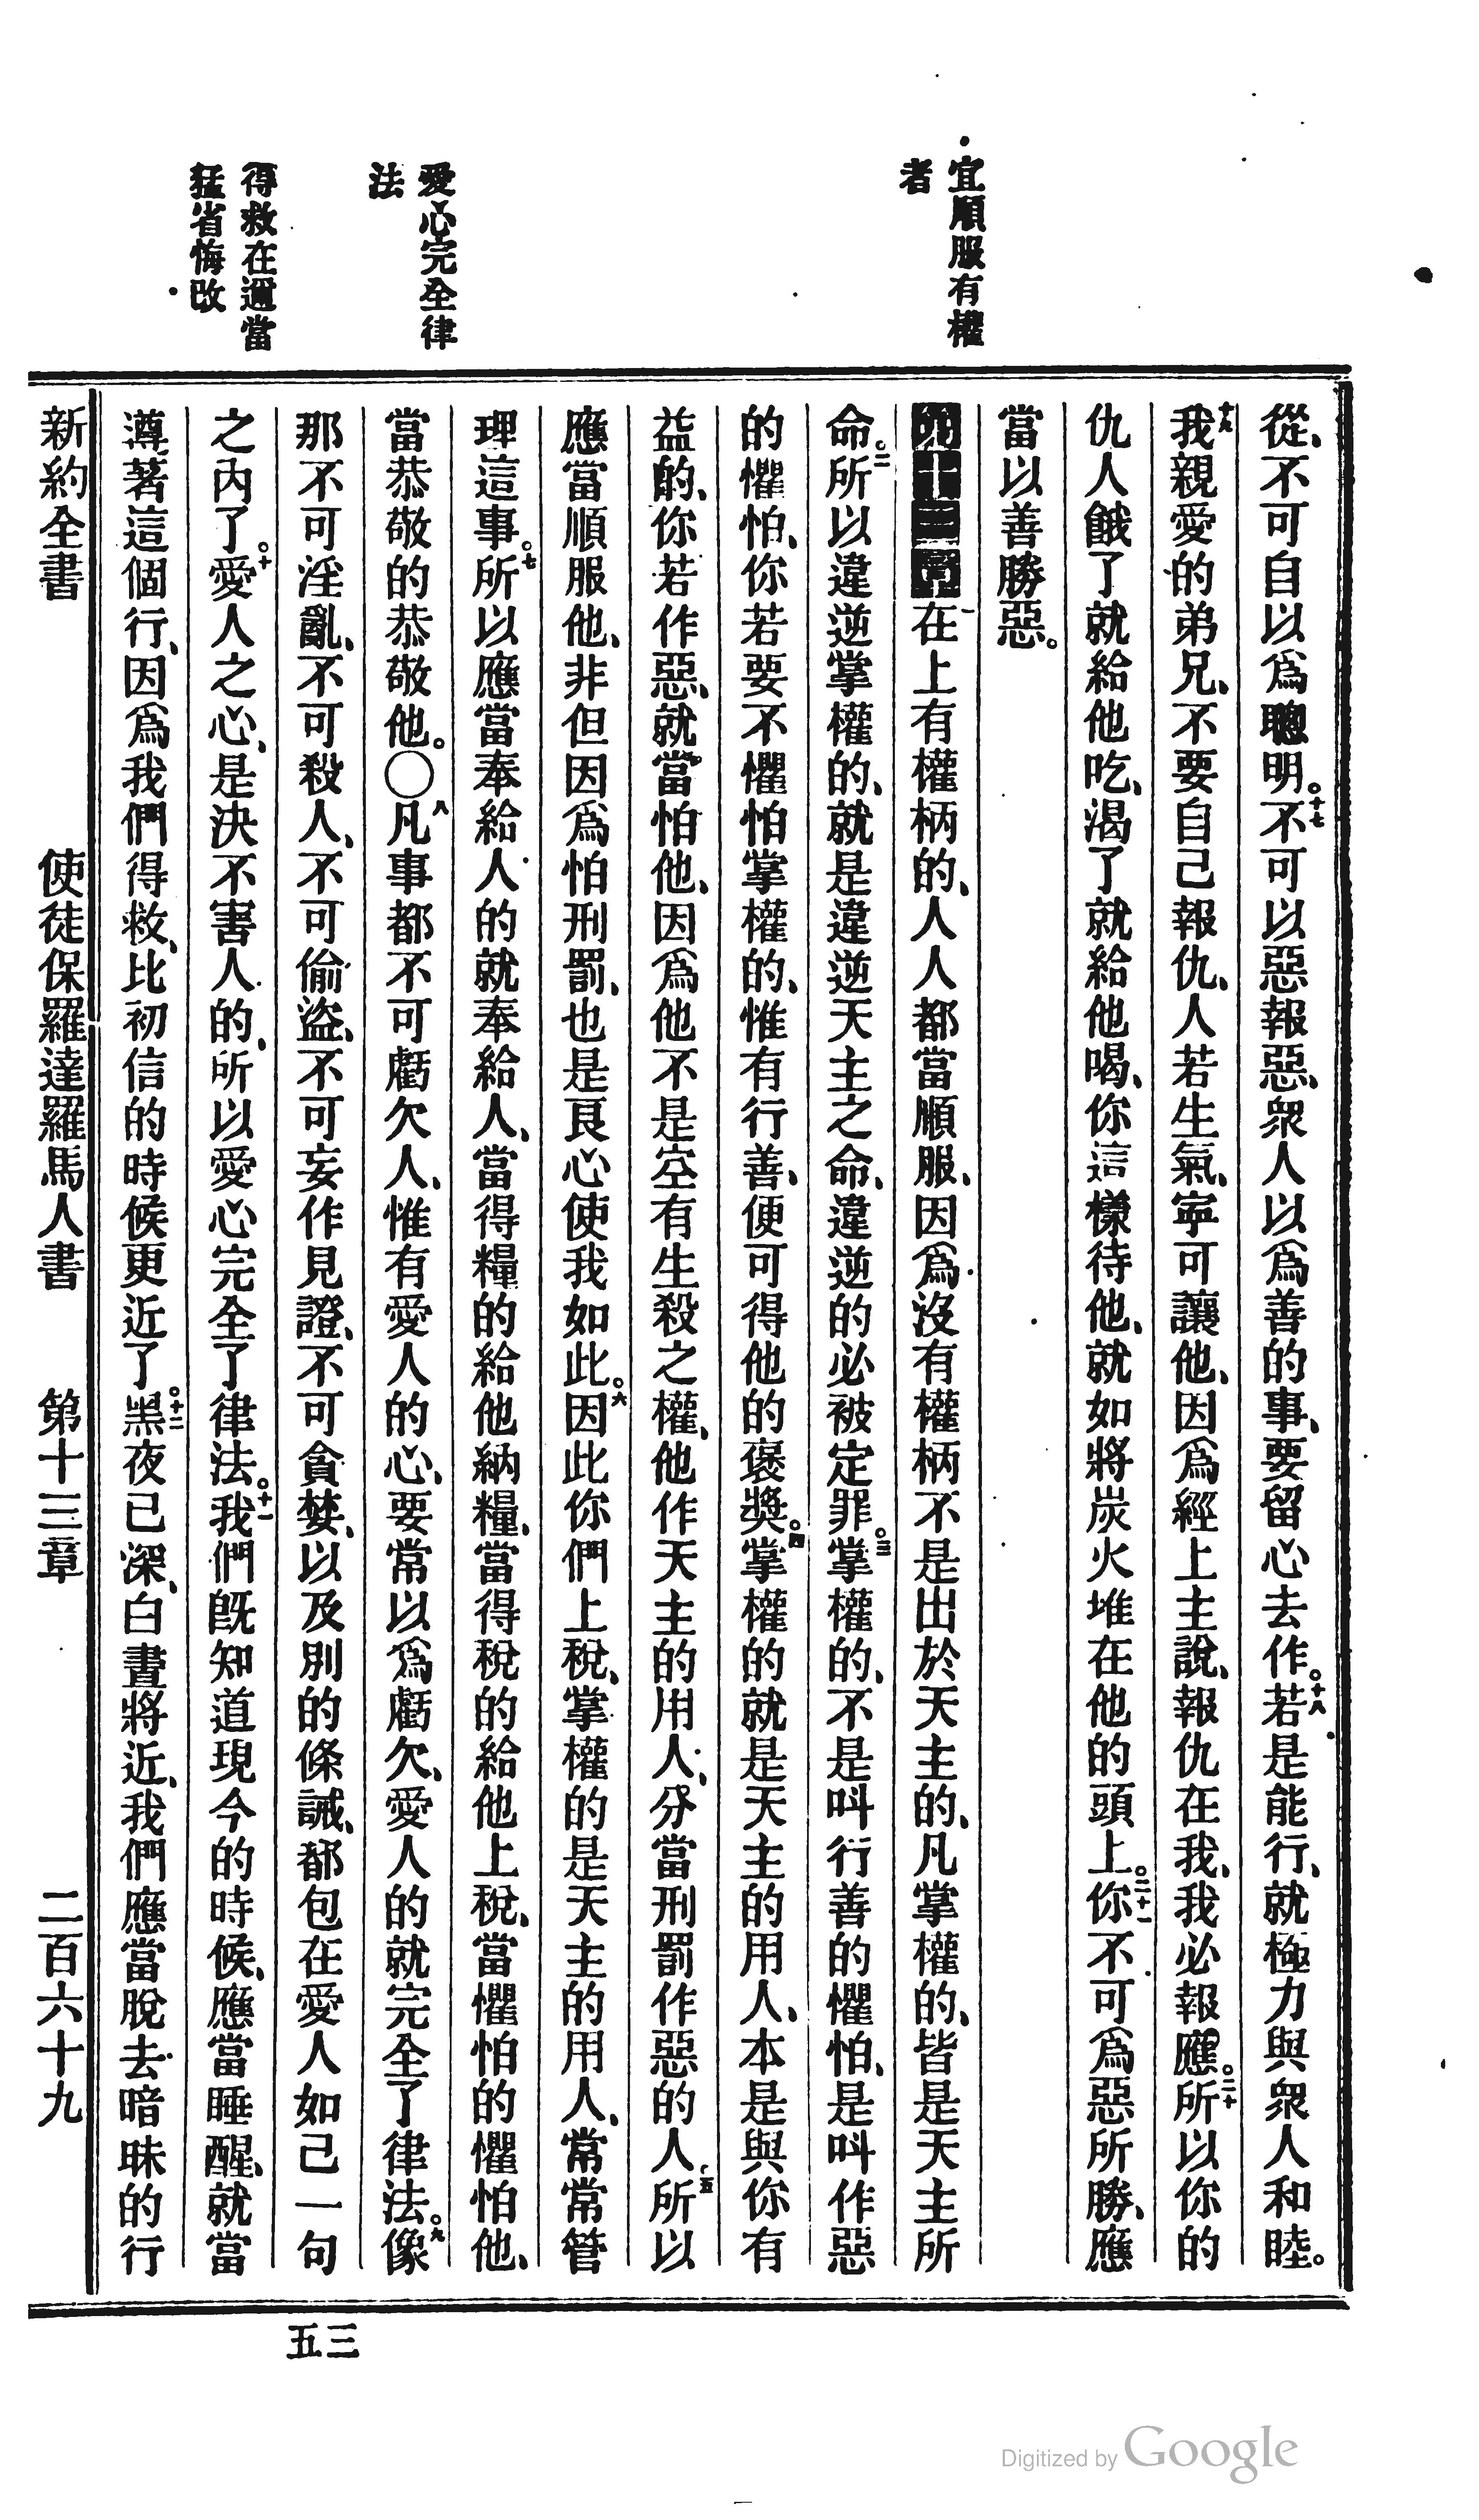 宜順服有權
者
愛心完全律
法
得救在邇當
猛省悔改
從、不可自以爲聰明。十七不可以惡報惡、衆人以爲善的事、要留心去作。十八若是能行、就極力與衆人和睦。
十九我親愛的弟兄、不要自己報仇、人若生氣、寧可讓他、因爲經上主說、報仇在我、我必報應。二十所以你的
仇人餓了就給他吃、渴了就給他喝、你這樣待他、就如將炭火堆在他的頭上。二十一你不可爲惡所勝、應
當以善勝惡。
第十三章一在上有權柄的、人人都當順服、因爲沒有權柄不是出於天主的、凡掌權的、皆是天主所
命。二所以違逆掌權的、就是違逆天主之命、違逆的必被定罪。三掌權的、不是叫行善的懼怕、是叫作惡
的懼怕、你若要不懼怕掌權的、惟有行善、便可得他的褒奬。四掌權的就是天主的用人、本是與你有
益的、你若作惡、就當怕他、因爲他不是空有生殺之權、他作天主的用人、分當刑罰作惡的人。五所以
應當順服他、非但因爲怕刑罰、也是良心使我如此。六因此你們上稅、掌權的是天主的用人、常常管
理這事。七所以應當奉給人的就奉給人、當得糧的給他納糧、當得稅的給他上稅、當懼怕的懼怕他、
當恭敬的恭敬他。○八凡事都不可虧欠人、惟有愛人的心、要常以爲虧欠、愛人的就完全了律法。九像
那不可淫亂、不可殺人、不可偷盜、不可妄作見證、不可貪婪、以及別的條誡、都包在愛人如己一句
之內了。十愛人之心、是決不害人的、所以愛心完全了律法。十一我們旣知道現今的時候、應當睡醒、就當
遵著這個行、因爲我們得救、比初信的時候更近了。十二黑夜已深、白晝將近、我們應當脫去暗昧的行
新約全書 使徒保羅達羅馬人書 第十三章 二百六十九
三五
Digitized by Google